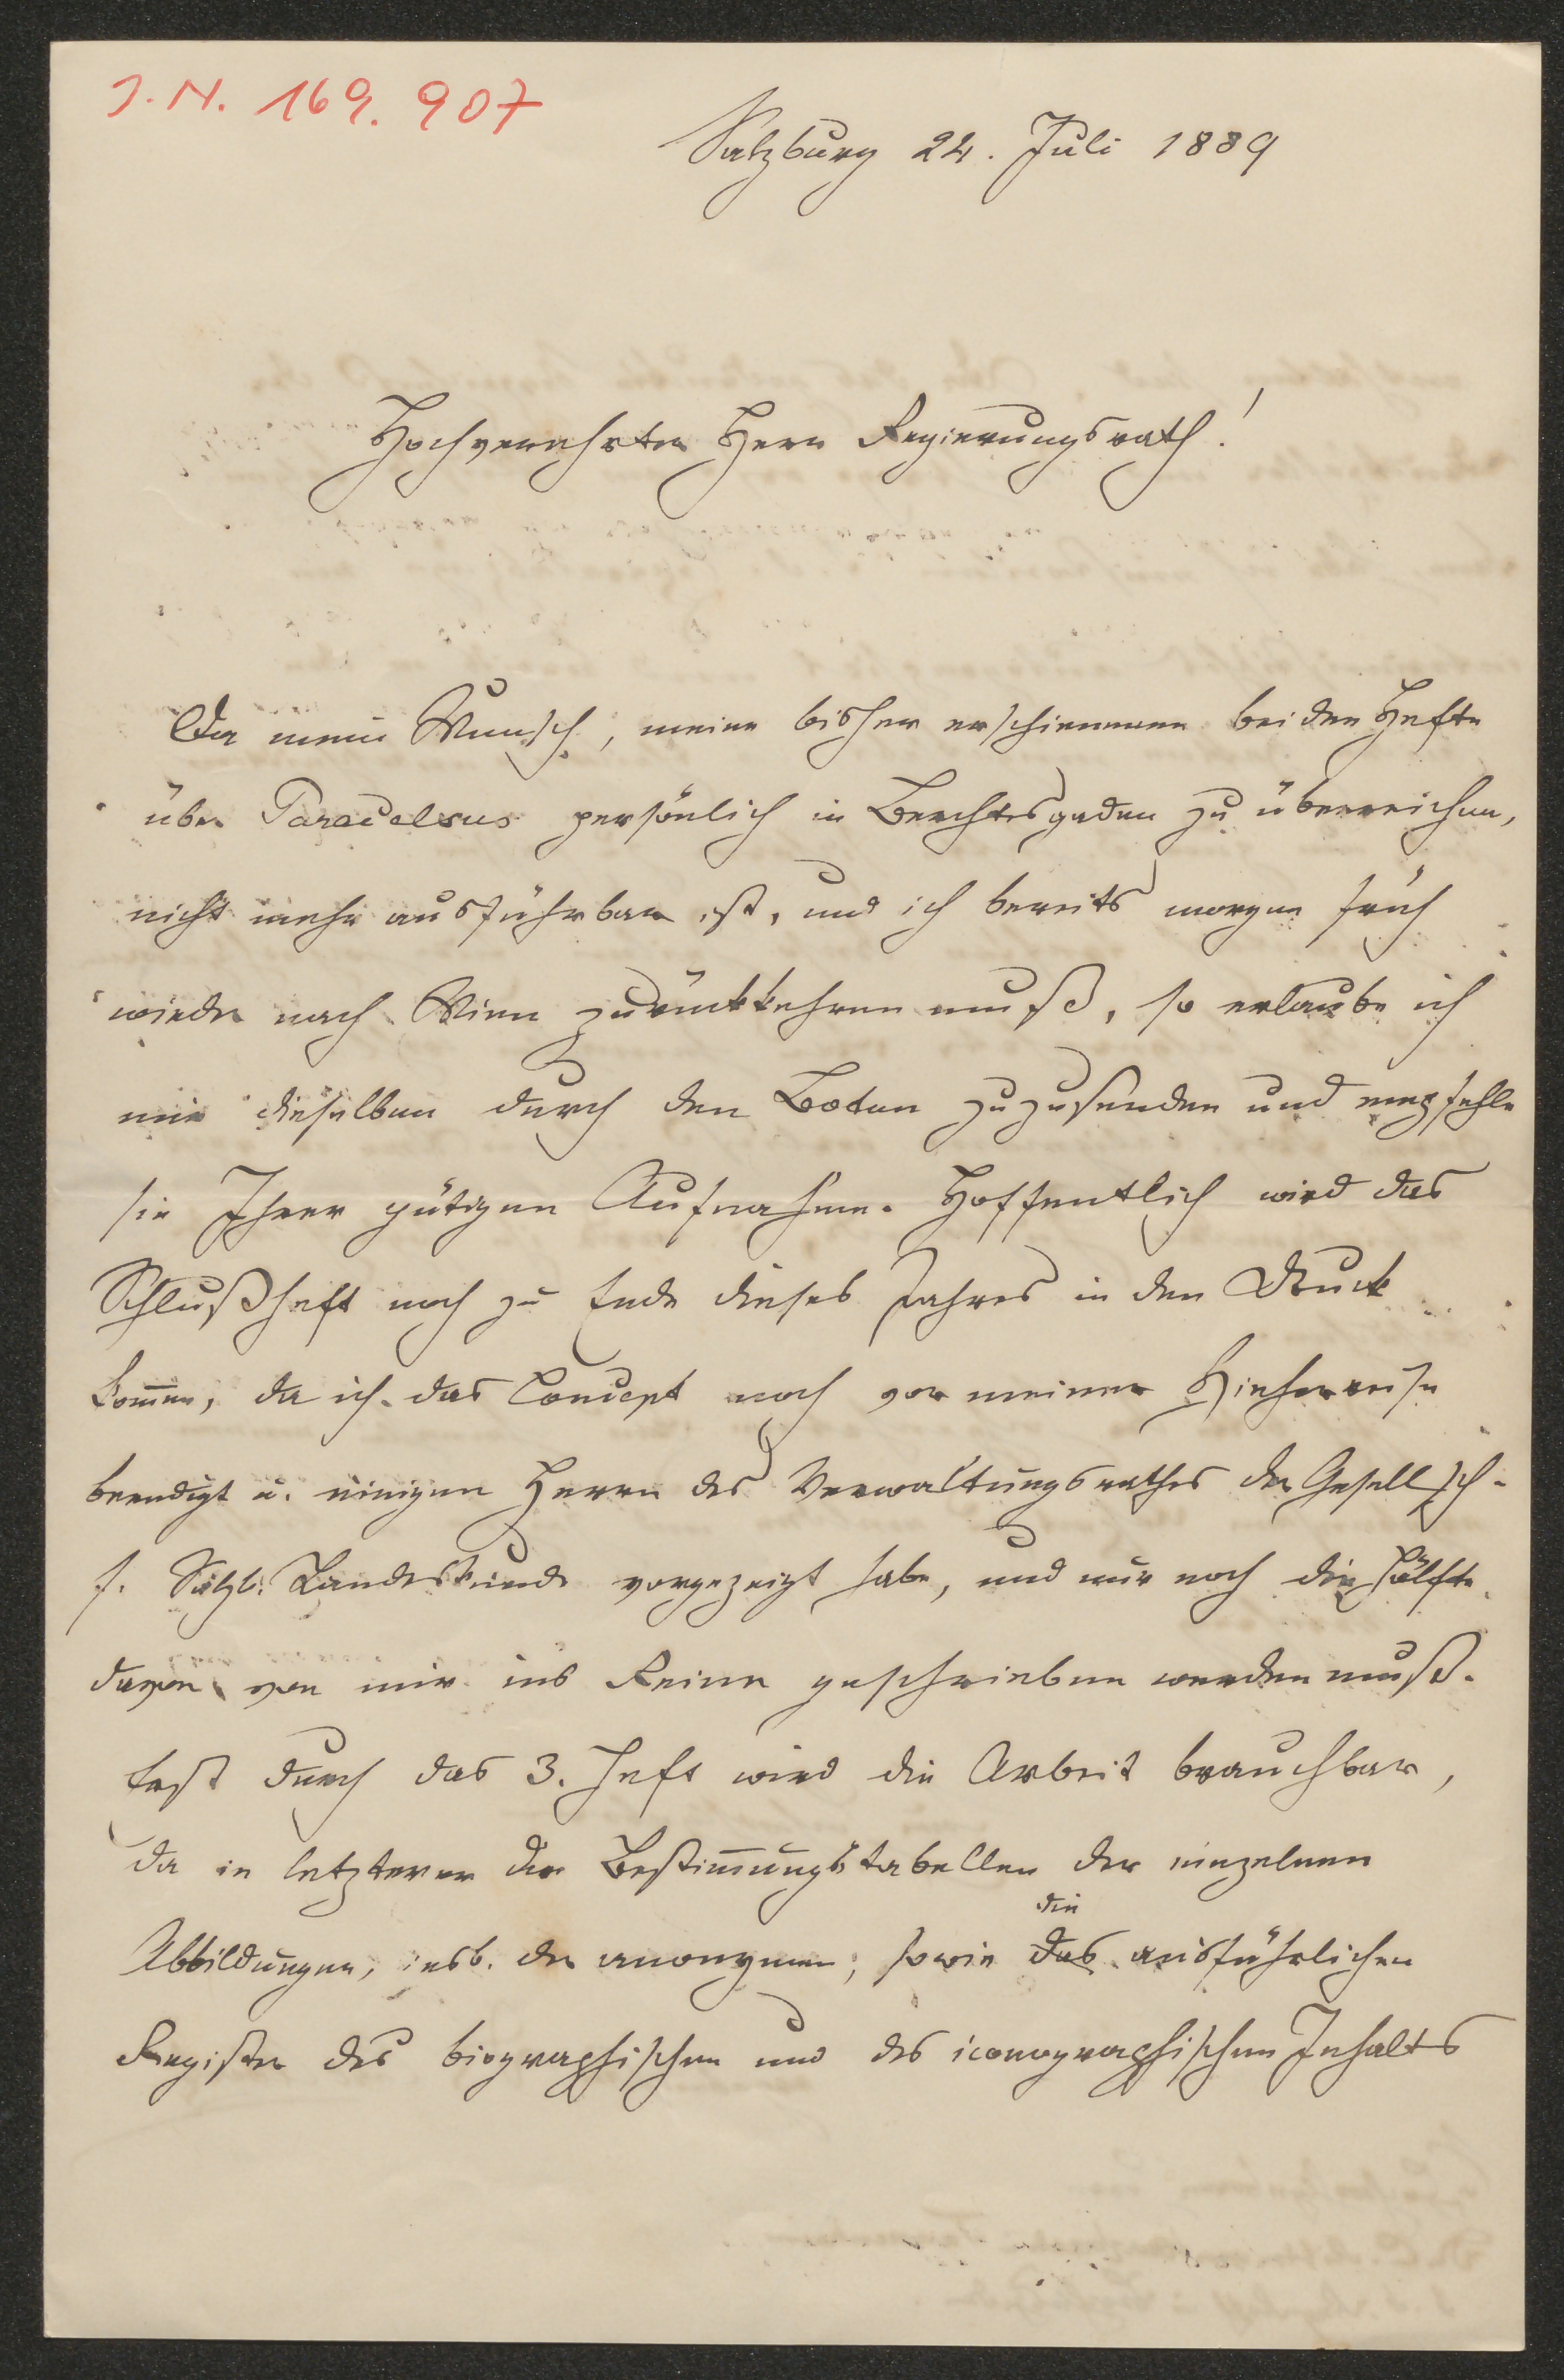 J. N. 169.907
Salzburg 24. Juli 1889
Hochverehrter Herr Regierungsrath!
Da mein Wunsch, meine bisher erschienenen beiden Hefte
über Paracelsus persönlich in Berchtesgaden zu überreichen,
nicht mehr ausführbar ist, und ich bereits morgen früh
wieder nach Wien zurückkehren muß, so erlaube ich
mir dieselben durch den Boten zuzusenden und empfehle
sie Ihrer gütigen Aufnahme. Hoffentlich wird das
Schlußheft noch zu Ende dieses Jahres in den Druck
kom̅en, da ich das Concept noch vor meiner Hieherreise
beendigt u. einigen Herrn des Verwaltungsrathes der Gesellsch.
f. Salzb. Landeskunde vorgezeigt habe, und nur noch die Hälfte
davon von mir ins Reine geschrieben werden muß.
Erst durch das 3. Heft wird die Arbeit brauchbar,
da in letzterer die Bestim̅ungstabellen der einzelnen
die
Abbildungen, insb. der anonymen, sowie das ausführlichen
Register des biographischen und des iconographischen Inhalts